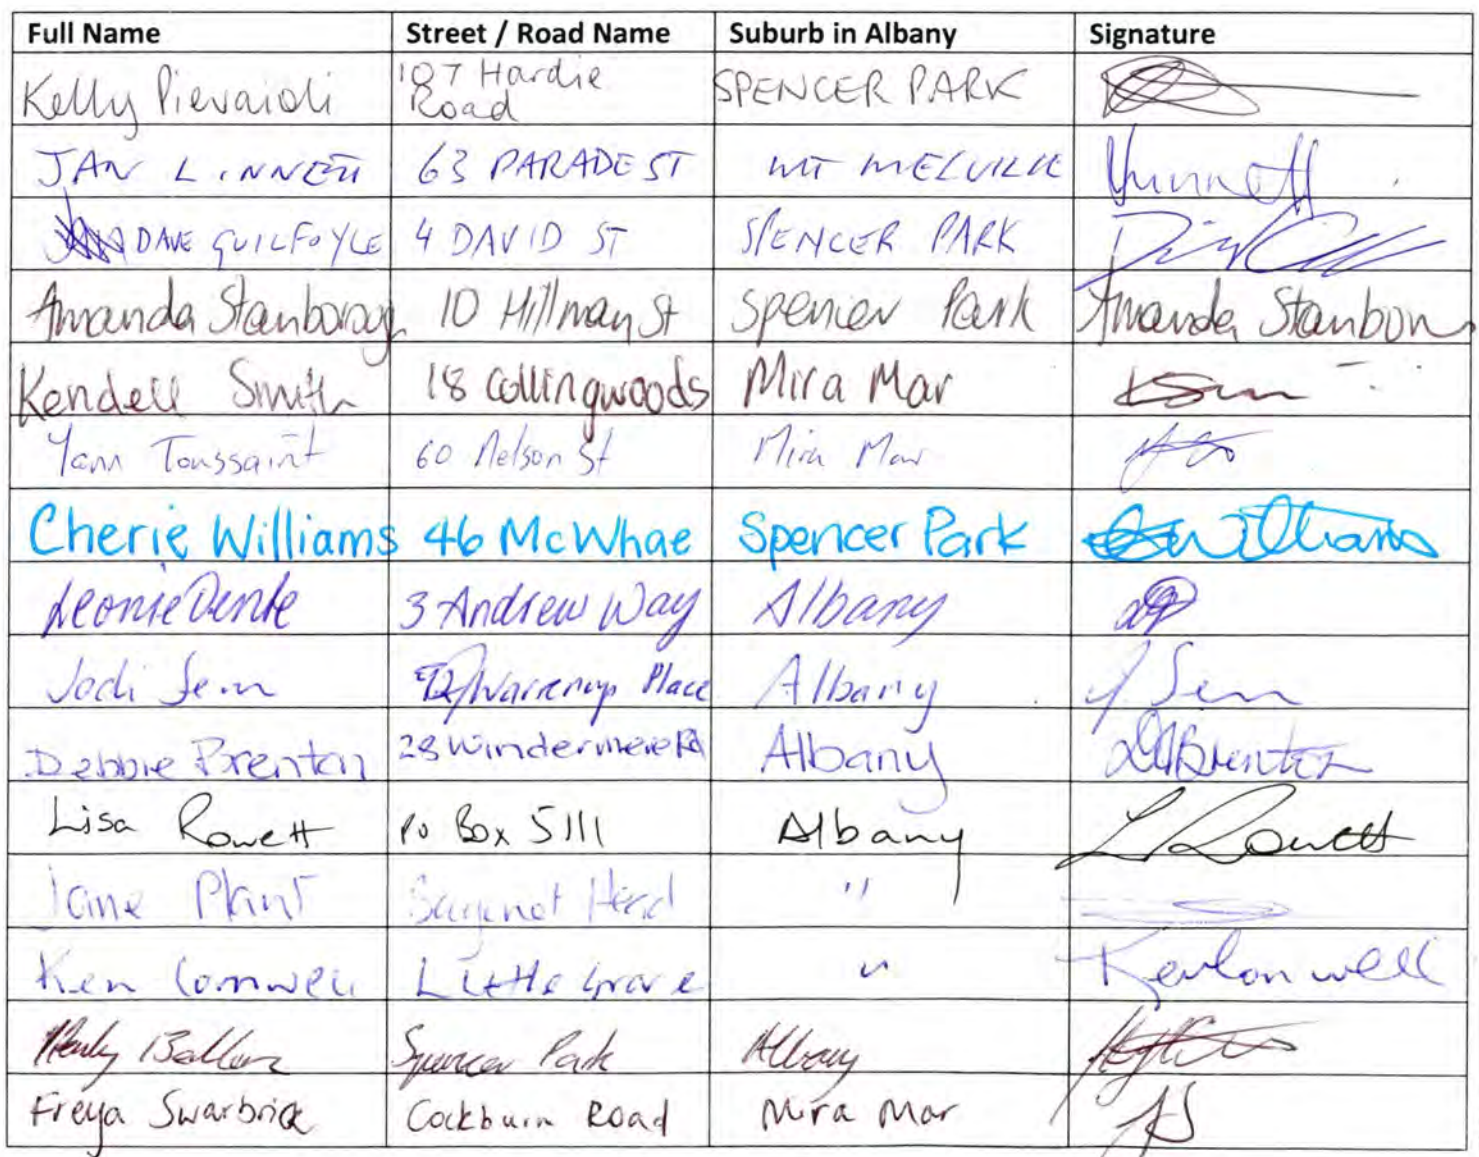 Full Name Street / Road Name Suburb in Albany Signature
Kelly Pievaioli 107 Hardie Road SPENCER PARK
JAN LINNETT 63 PARADE ST MT MELVILLE
DAVE GUILFOYLE 4 DAVID ST SPENCER PARK
Amanda Stanborough 10 Hillman St Spencer Park Amanda Stanboro
Kendell Smith 18 Collingwoods Mira Mar
Yann Toussaint 60 Nelson St Mira Mar
Cherie Williams 46 McWhae Spencer Park Williams
Leonie 3 Andrew Way Albany
Jodi Warrenup Place Albany
Debbie Brenton 28 Windermere Rd Albany Brenton
Lisa Rowett Po Box 5111 Albany L Rowett
Jane Plant Head "
Ken Cornwell Little Grove "
Spencer Park Albany
Freya Swarbrick Cockburn Road Mira Mar